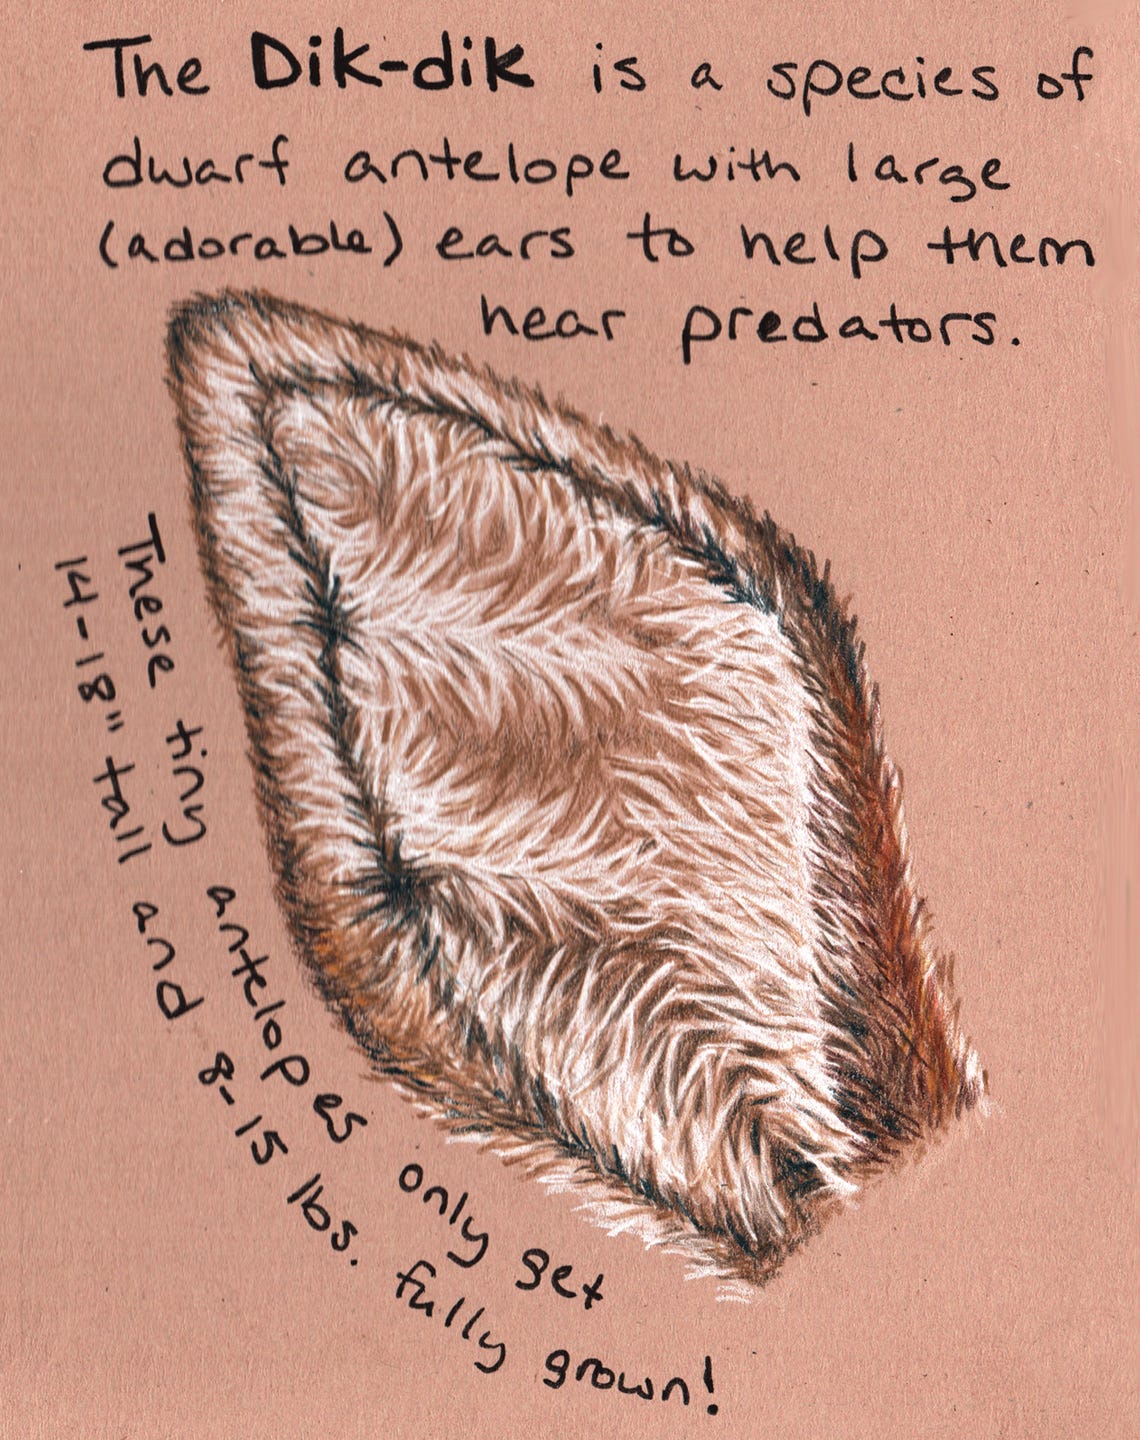 The Dik-dik is a species of
dwarf antelope with large
(adorable) ears to help them
hear predators.
These tiny antelopes only get
14-18" tall and 8-15 lbs. fully grown!